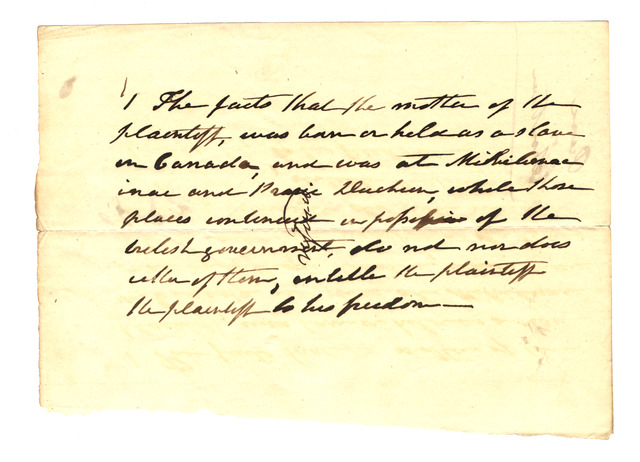 1 The facts that the mother of the
plaintiff, was born or held as a slave
in Canada, and was at Michilimac
inac and Prarie Duchien, while those
places continued in possession of the
british government, do not nor does
either of them, entitle the plaintiff
the plaintiff to his freedom—